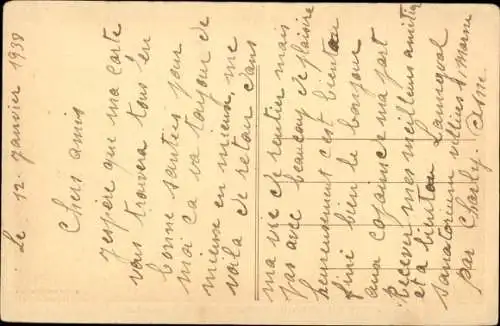 Le 12 Janvier 1938
Chers amis
J'espère que ma carte
vous trouvera tous en
bonne santées pour
moi ca va toujour de
mieux en mieux, me
voila de retour dans
ma vie de rentier mais
pas avec beaucoup de plaisire
heureusement c'est bientau
fini bien le bonjour
aux copains de ma part
Recevez mes meilleurs amitiés
et a bientau
sanatorium Villiers S. Marne
par Charly. Aisne